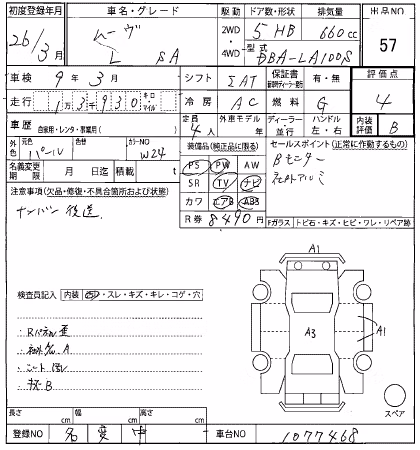 初度登録年月 車名・グレード 駆動 ドア数・形状 排気量 出品NO
26/3月 ムーヴ L SA 2WD 4WD 5 HB 660cc 57
型式 DBA-LA100S
車検 9年3月 シフト ΣAT 保証書 有・無 評価点
走行 1万3千930 キロ マイル 冷房 AC 燃料 G 4
車歴 自家用・レンタ・事業用( ) 定員 4人 外車モデル 年 ディーラー 並行 ハンドル 左・右 内装評価 B
外色 元色 パール 色替 カラーNO W24 装備品(純正品に限る) セールスポイント(正常に作動するもの)
名義変更期限 月 日迄 積載 t PS PW AW Bモニター
注意事項(欠品・修復・不具合箇所および状態) SR TV ナビ 社外アルミ
ナンバン後送 カワ エアB ABS
R券 8490円 Fガラス トビ石・キズ・ヒビ・ワレ・リペア跡
A1
検査員記入 内装 スレ・キズ・キレ・コゲ・穴
・Rパネル歪
A3 A1
A
・シート
B
長さ cm 幅 cm 高さ cm スペア
登録NO 名変中 車台NO 1077468